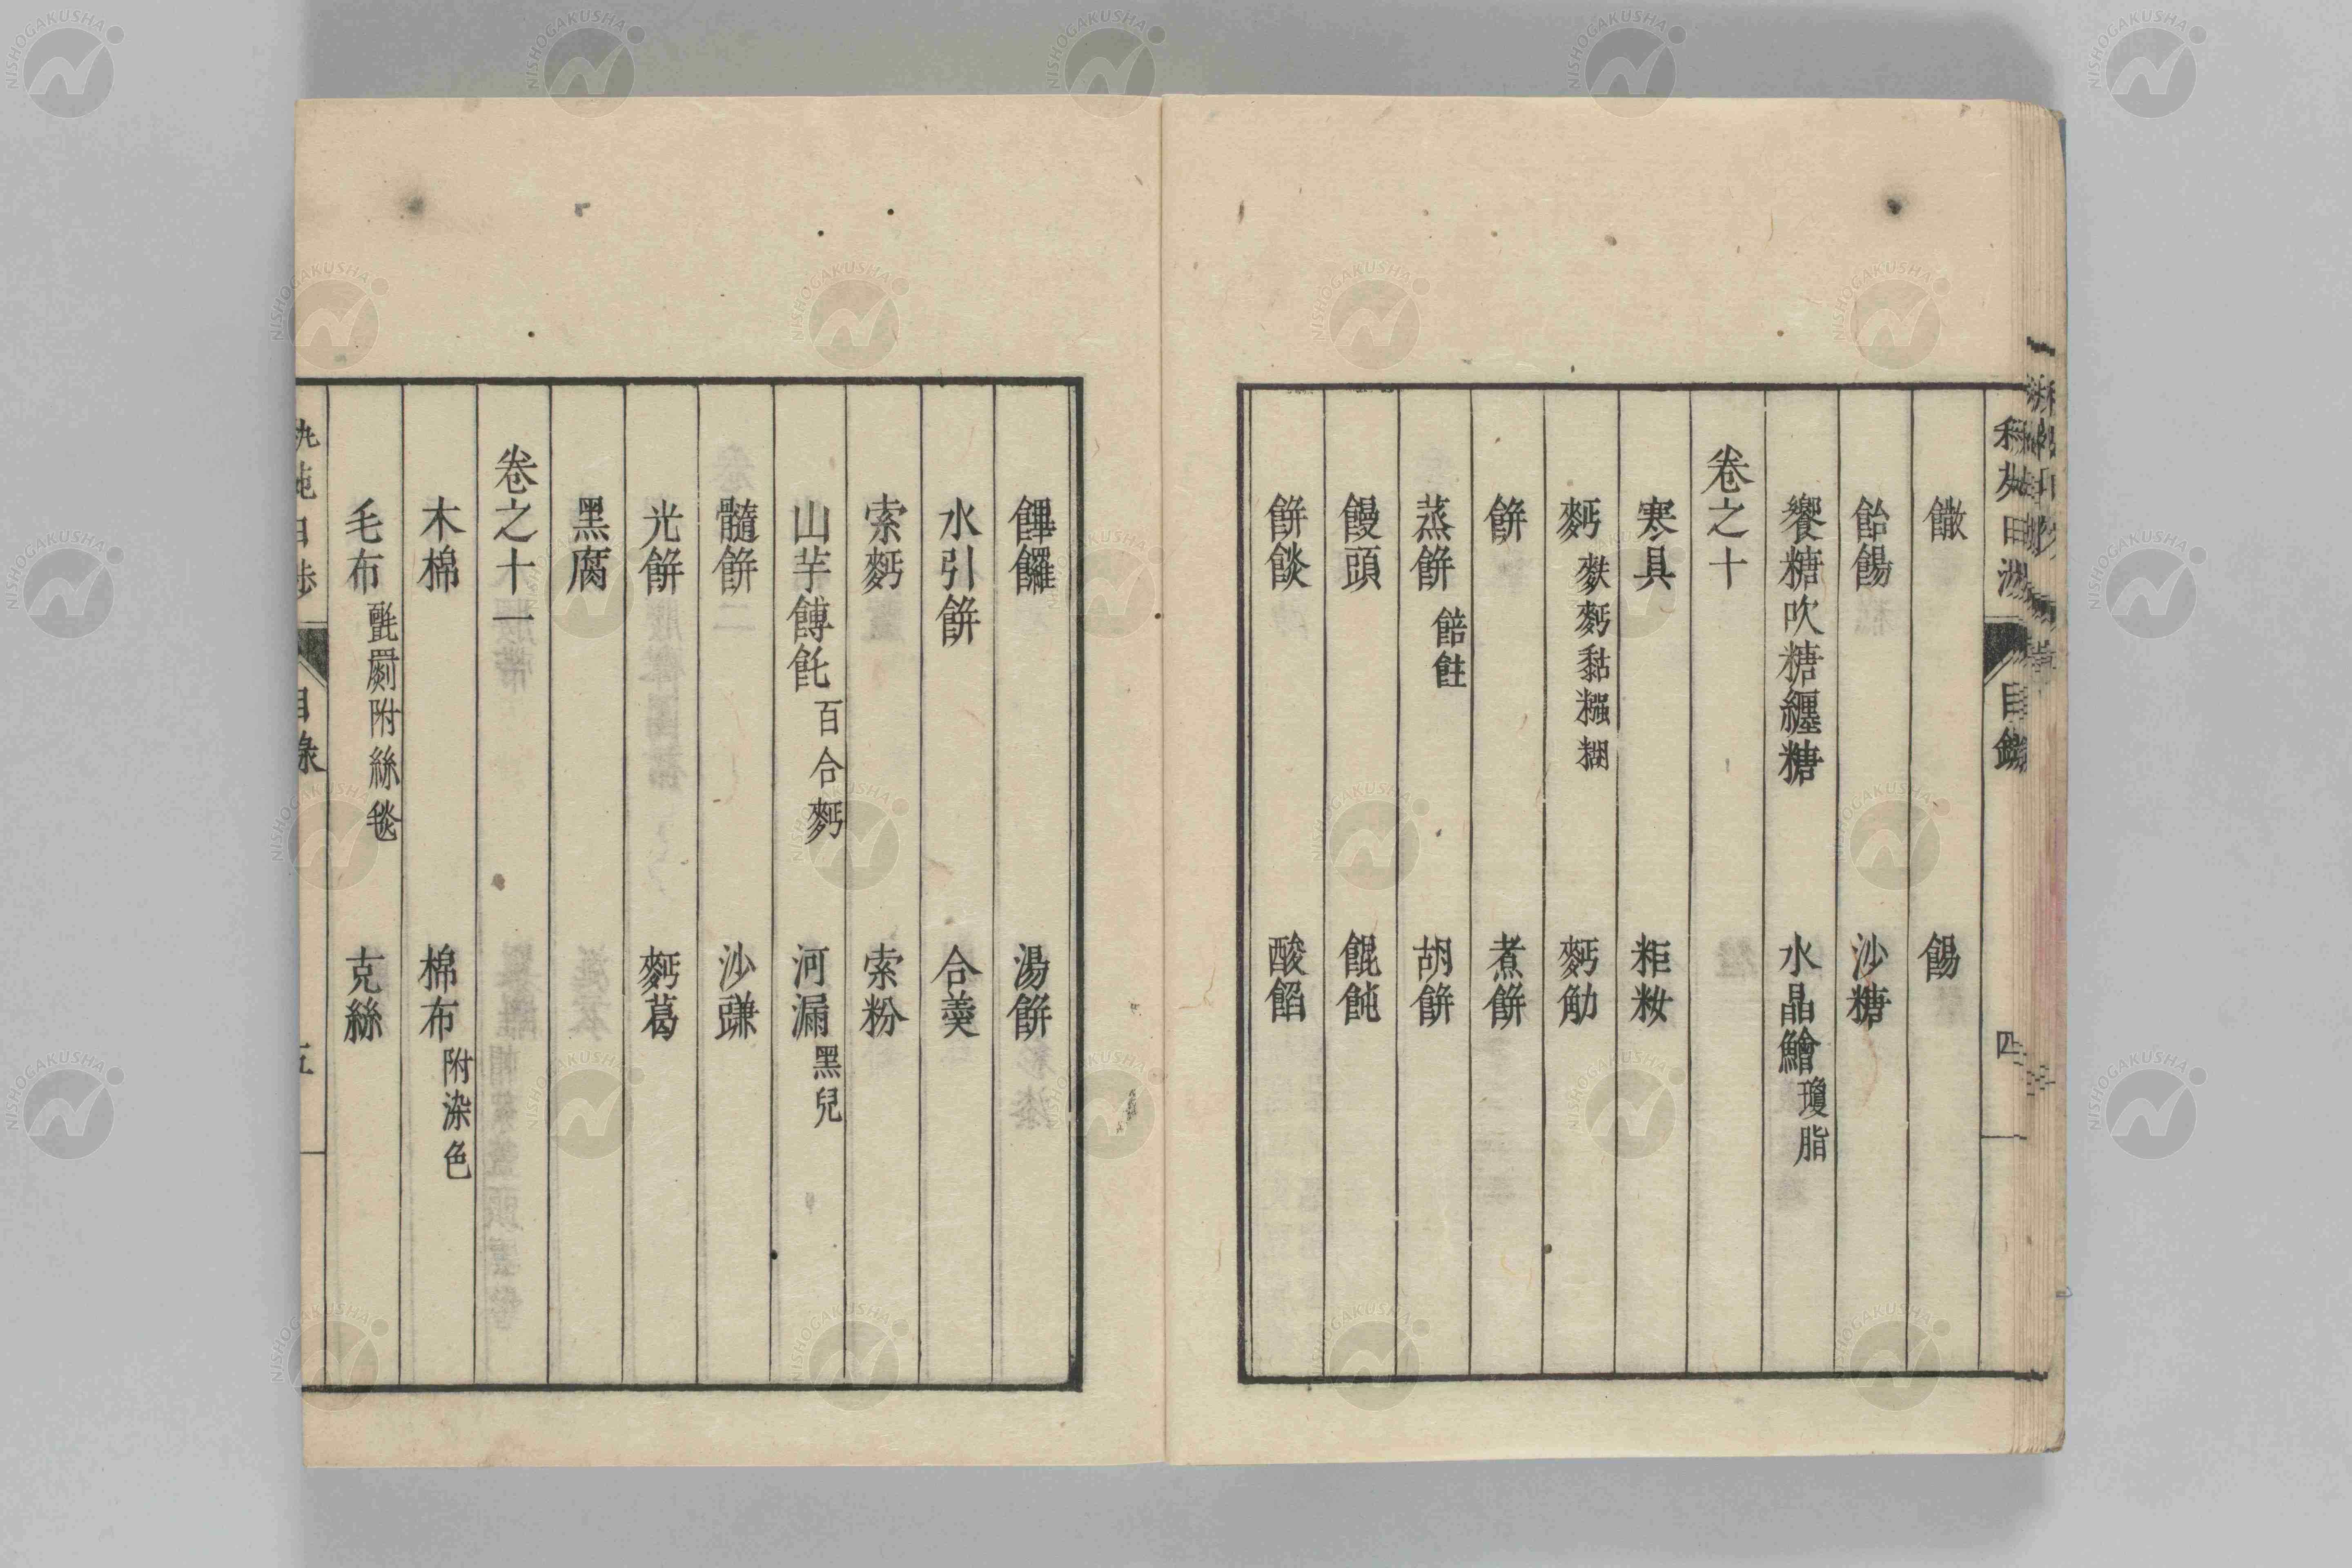 饊　餳
飴餳　沙糖
饗糖吹糖纏糖　水晶鱠瓊脂
卷之十
寒具　粔籹
麪麩麪黏糨糊　麪觔
餅　煮餅
蒸餅餢飳　胡餅
饅頭　餛飩
餅餤　酸餡
目錄
四
饆饠　湯餅
水引餅　合羹
索麪　索粉
山芋餺飥百合麪　河漏黑兒
髓餅　沙䜴
光餅　麪葛
黑腐
卷之十一
木棉　棉布附染色
毛布氈罽附絲毯　克絲